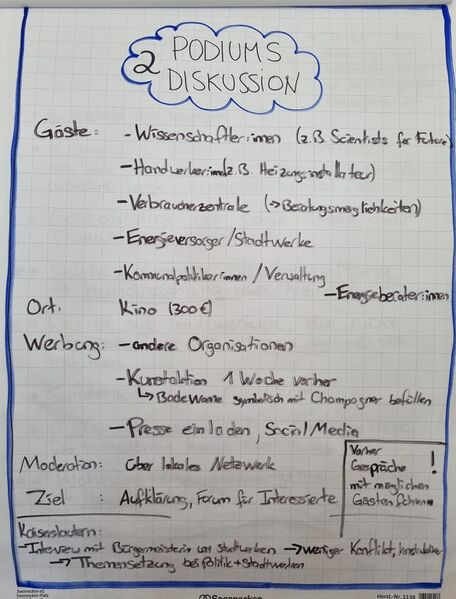 2 PODIUMS
DISKUSSION
Gäste: - Wissenschaftler:innen (z.B Scientists for Future)
- Handwerker:innen(z.B. Heizungsinstallateur)
- Verbraucherzentrale (→Beratungsmöglichkeiten)
- Energieversorger/Stadtwerke
- Kommunalpolitiker:innen / Verwaltung
- Energieberater:innen
Ort: Kino (300€)
Werbung: - andere Organisationen
- Kunstaktion 1 Woche vorher
↳ Badewanne symbolisch mit Champagner befüllen
- Presse einladen, Social Media
Moderation: über lokales Netzwerk
Ziel : Aufklärung, Forum für Interessierte
Vorher
Gespräche !
mit möglichen
Gästen führen
Kaiserslautern:
- Interview mit Bürgermeisterin und Stadtwerken → weniger Konflikt, konstruktiver
→ Themensetzung bei Politik + Stadtwerken
Soennecken eG
Soennecken-Platz
Soennecken
Herst.-Nr. 1138